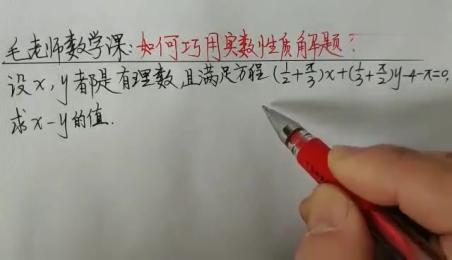 毛老师数学课:如何巧用实数性质解题?
设x,y都是有理数,且满足方程(1/2+π/3)x+(1/3+π/2)y-4-π=0,
求x-y的值.